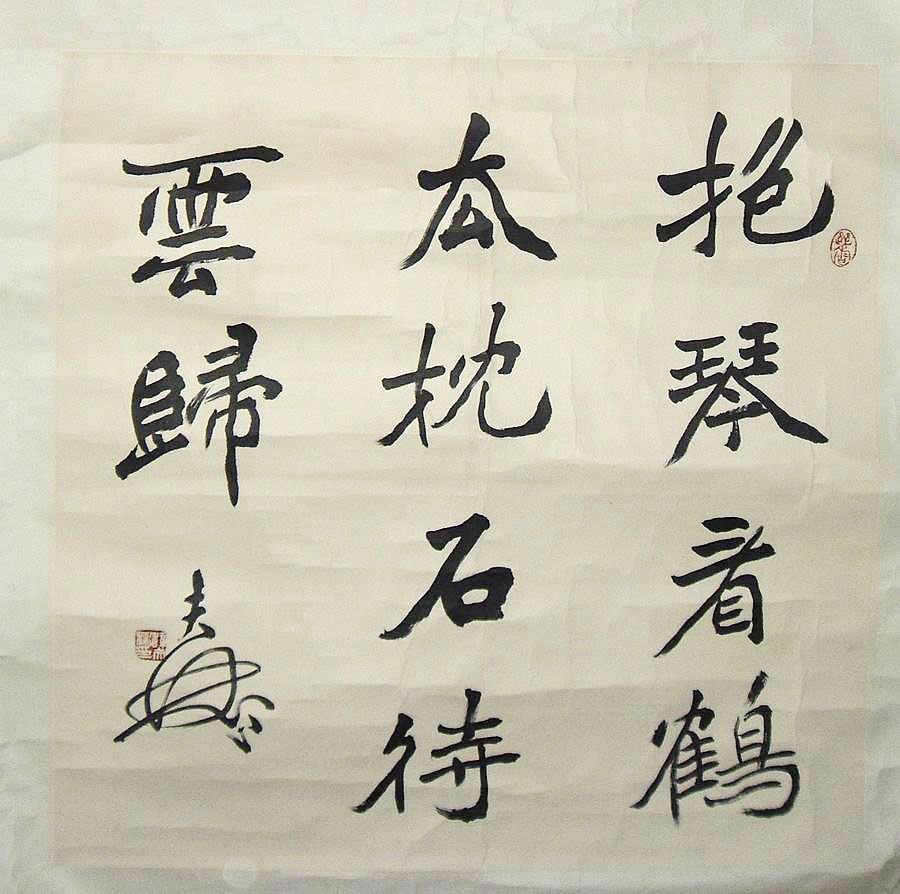 抱琴看鶴
去枕石待
雲歸